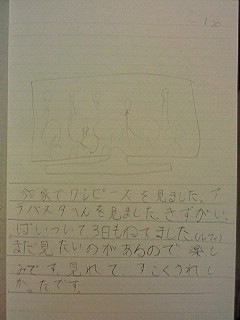 1/20
家でワンピースを見ました。ア
ラバスタへんを見ました。きずがい
ぱいついて3日もねてました。(ルフィ)
まだ見たいのがあるので楽し
みです。見れて すごくうれし
かったです。